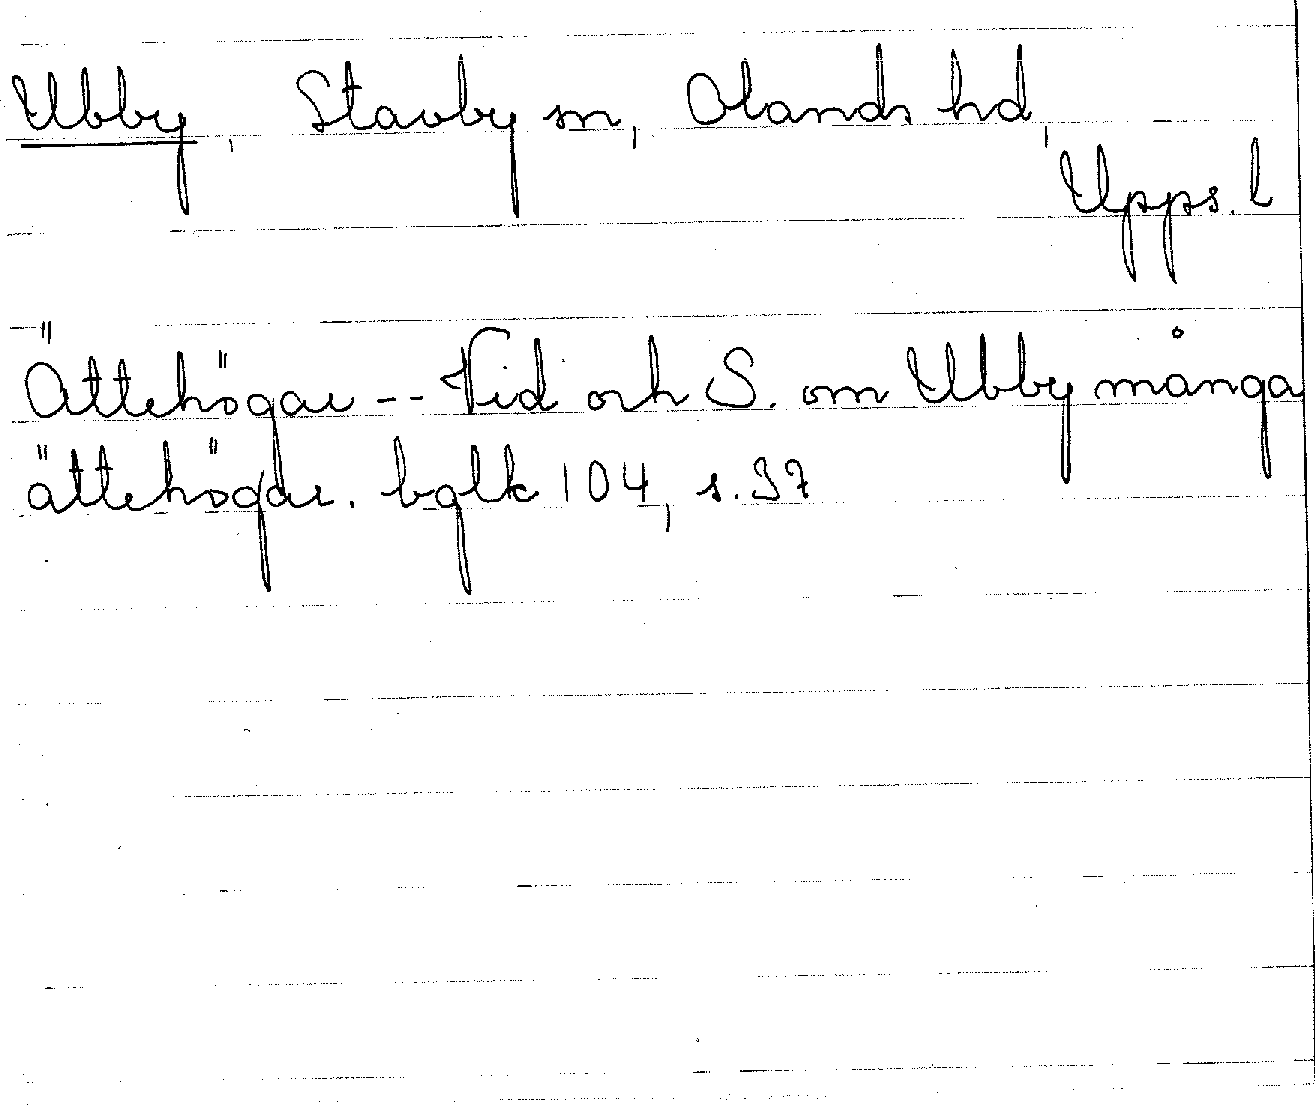 Ubby, Stavby sn, Olands hd,
Upps. l
Ättehögar -- Vid och S. om Ubby många
ättehögar. bglk 104, s. 37